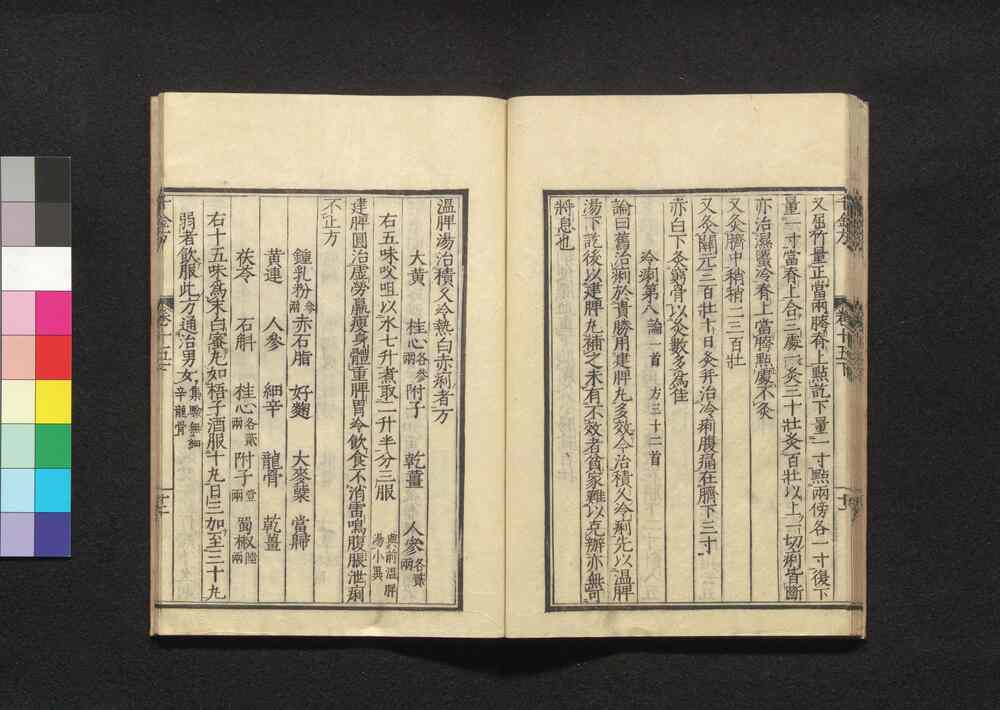 又屈竹量正當兩胯脊上點訖下量一寸點兩傍各一寸復下
量一寸當脊上合三處一灸三十壯灸百壯以上一切痢皆斷
亦治濕䘌冷脊上當臍點處不灸
又灸臍中稍稍二三百壯
又灸關元三百壯十日灸并治冷痢腹痛在臍下三寸
赤白下灸窮骨以灸數多為佳
冷痢第八 論一首 方三十二首
論曰舊治痢於貴勝用建脾丸多效今治積久冷痢先以溫脾
湯下訖後以建脾丸補之未有不效者貧家難以克辦亦無可
將息也
溫脾湯治積久冷熱白赤痢者方
大黃 桂心各參兩 附子 乾薑 人參各貳兩
右五味㕮咀以水七升煮取二升半分三服 與前溫脾湯小異
建脾圓治虛勞羸瘦身體重脾胃冷飲食不消雷鳴腹脹泄痢
不止方
鐘乳粉參兩 赤石脂 好麴 大麥蘗 當歸
黃連 人參 細辛 龍骨 乾薑
茯苓 石斛 桂心各貳兩 附子壹兩 蜀椒陸兩
右十五味為末白蜜丸如梧子酒服十丸日三加至三十丸
弱者飲服此方通治男女 集驗無細辛龍骨